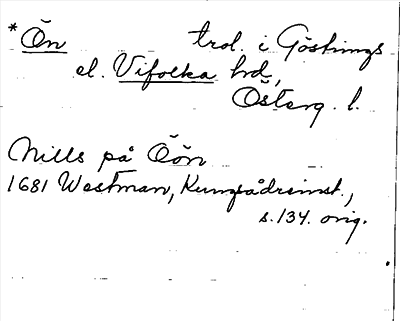 *Ön trol. i Göstrings
el. Vifolka hd,
Österg. l.
Nills på Öön
1681 Westman, Kungsådreinst.,
s. 134. orig.